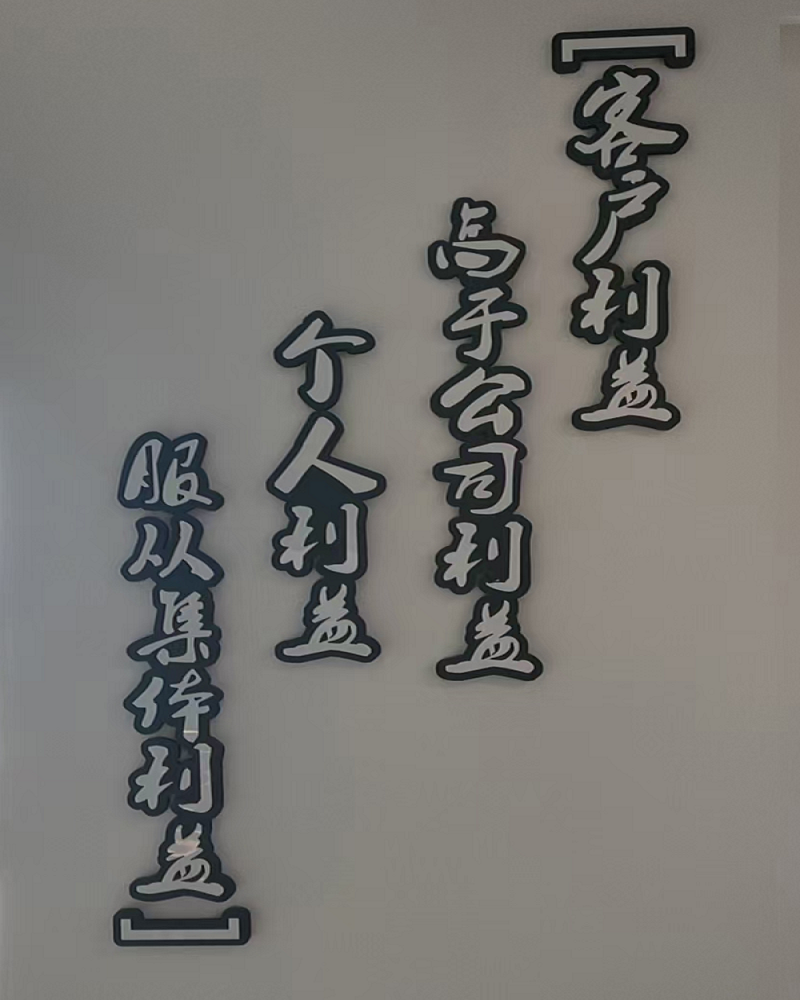 [客户利益
高于公司利益
个人利益
服从集体利益]